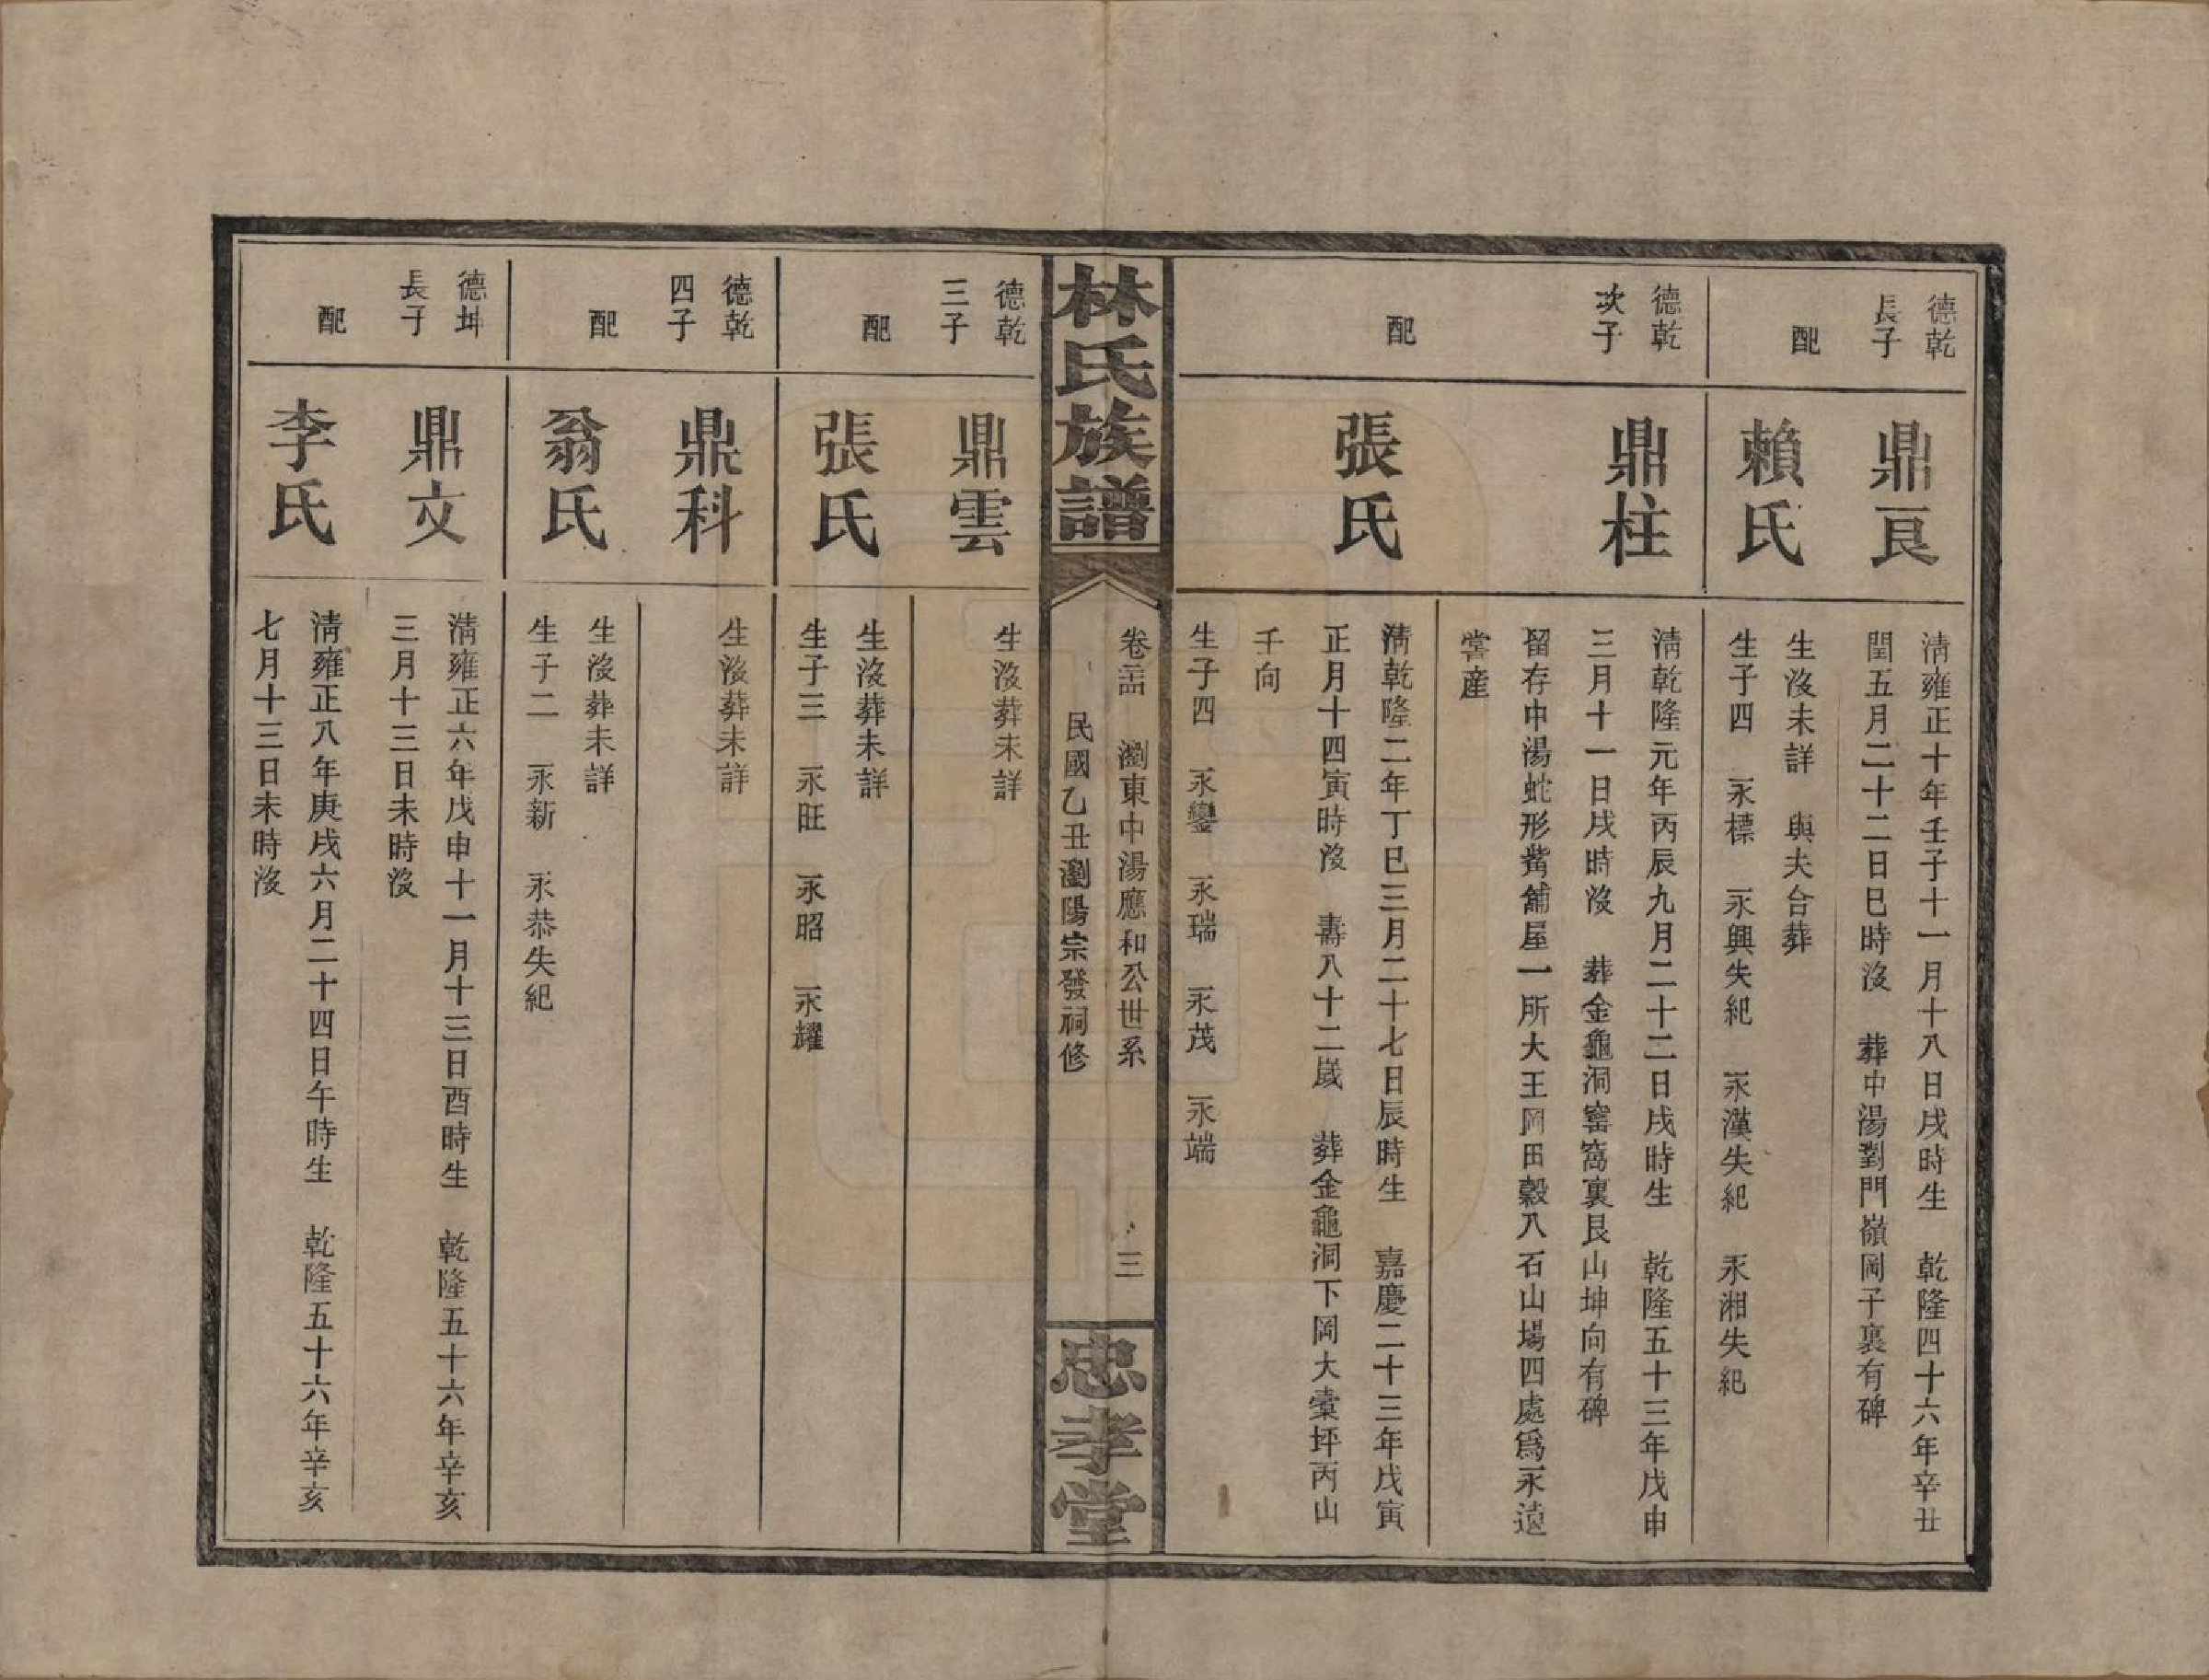 德乾
長子
鼎良
清雍正十年壬子十一月十八日戌時生　乾隆四十六年辛丑
閏五月二十二日巳時沒　葬中湯對門嶺岡子裏有碑
配
賴氏
生沒未詳　與夫合葬
生子四　永標　永興失紀　永漢失紀　永湘失紀
德乾
次子
鼎柱
清乾隆元年丙辰九月二十二日戌時生　乾隆五十三年戊申
三月十一日戌時沒　葬金龜洞窰窩裏艮山坤向有碑
留存中湯蛇形觜舖屋一所大王岡田穀八石山場四處爲永遠
甞產
配
張氏
清乾隆二年丁巳三月二十七日辰時生　嘉慶二十三年戊寅
正月十四寅時沒　壽八十二歲　葬金龜洞下岡大坪丙山
壬向
生子四　永鑾　永瑞　永茂　永端
林氏族譜
卷　瀏東中湯應和公世系
民國乙丑瀏陽宗發祠修
三
忠孝堂
德乾
三子
鼎雲
生沒葬未詳
配
張氏
生沒葬未詳
生子三　永旺　永昭　永耀
德乾
四子
鼎科
生沒葬未詳
配
翁氏
生沒葬未詳
生子二　永新　永恭失紀
德坤
長子
鼎文
清雍正六年戊申十一月十三日酉時生　乾隆五十六年辛亥
三月十三日未時沒
配
李氏
清雍正八年庚戌六月二十四日午時生　乾隆五十六年辛亥
七月十三日未時沒